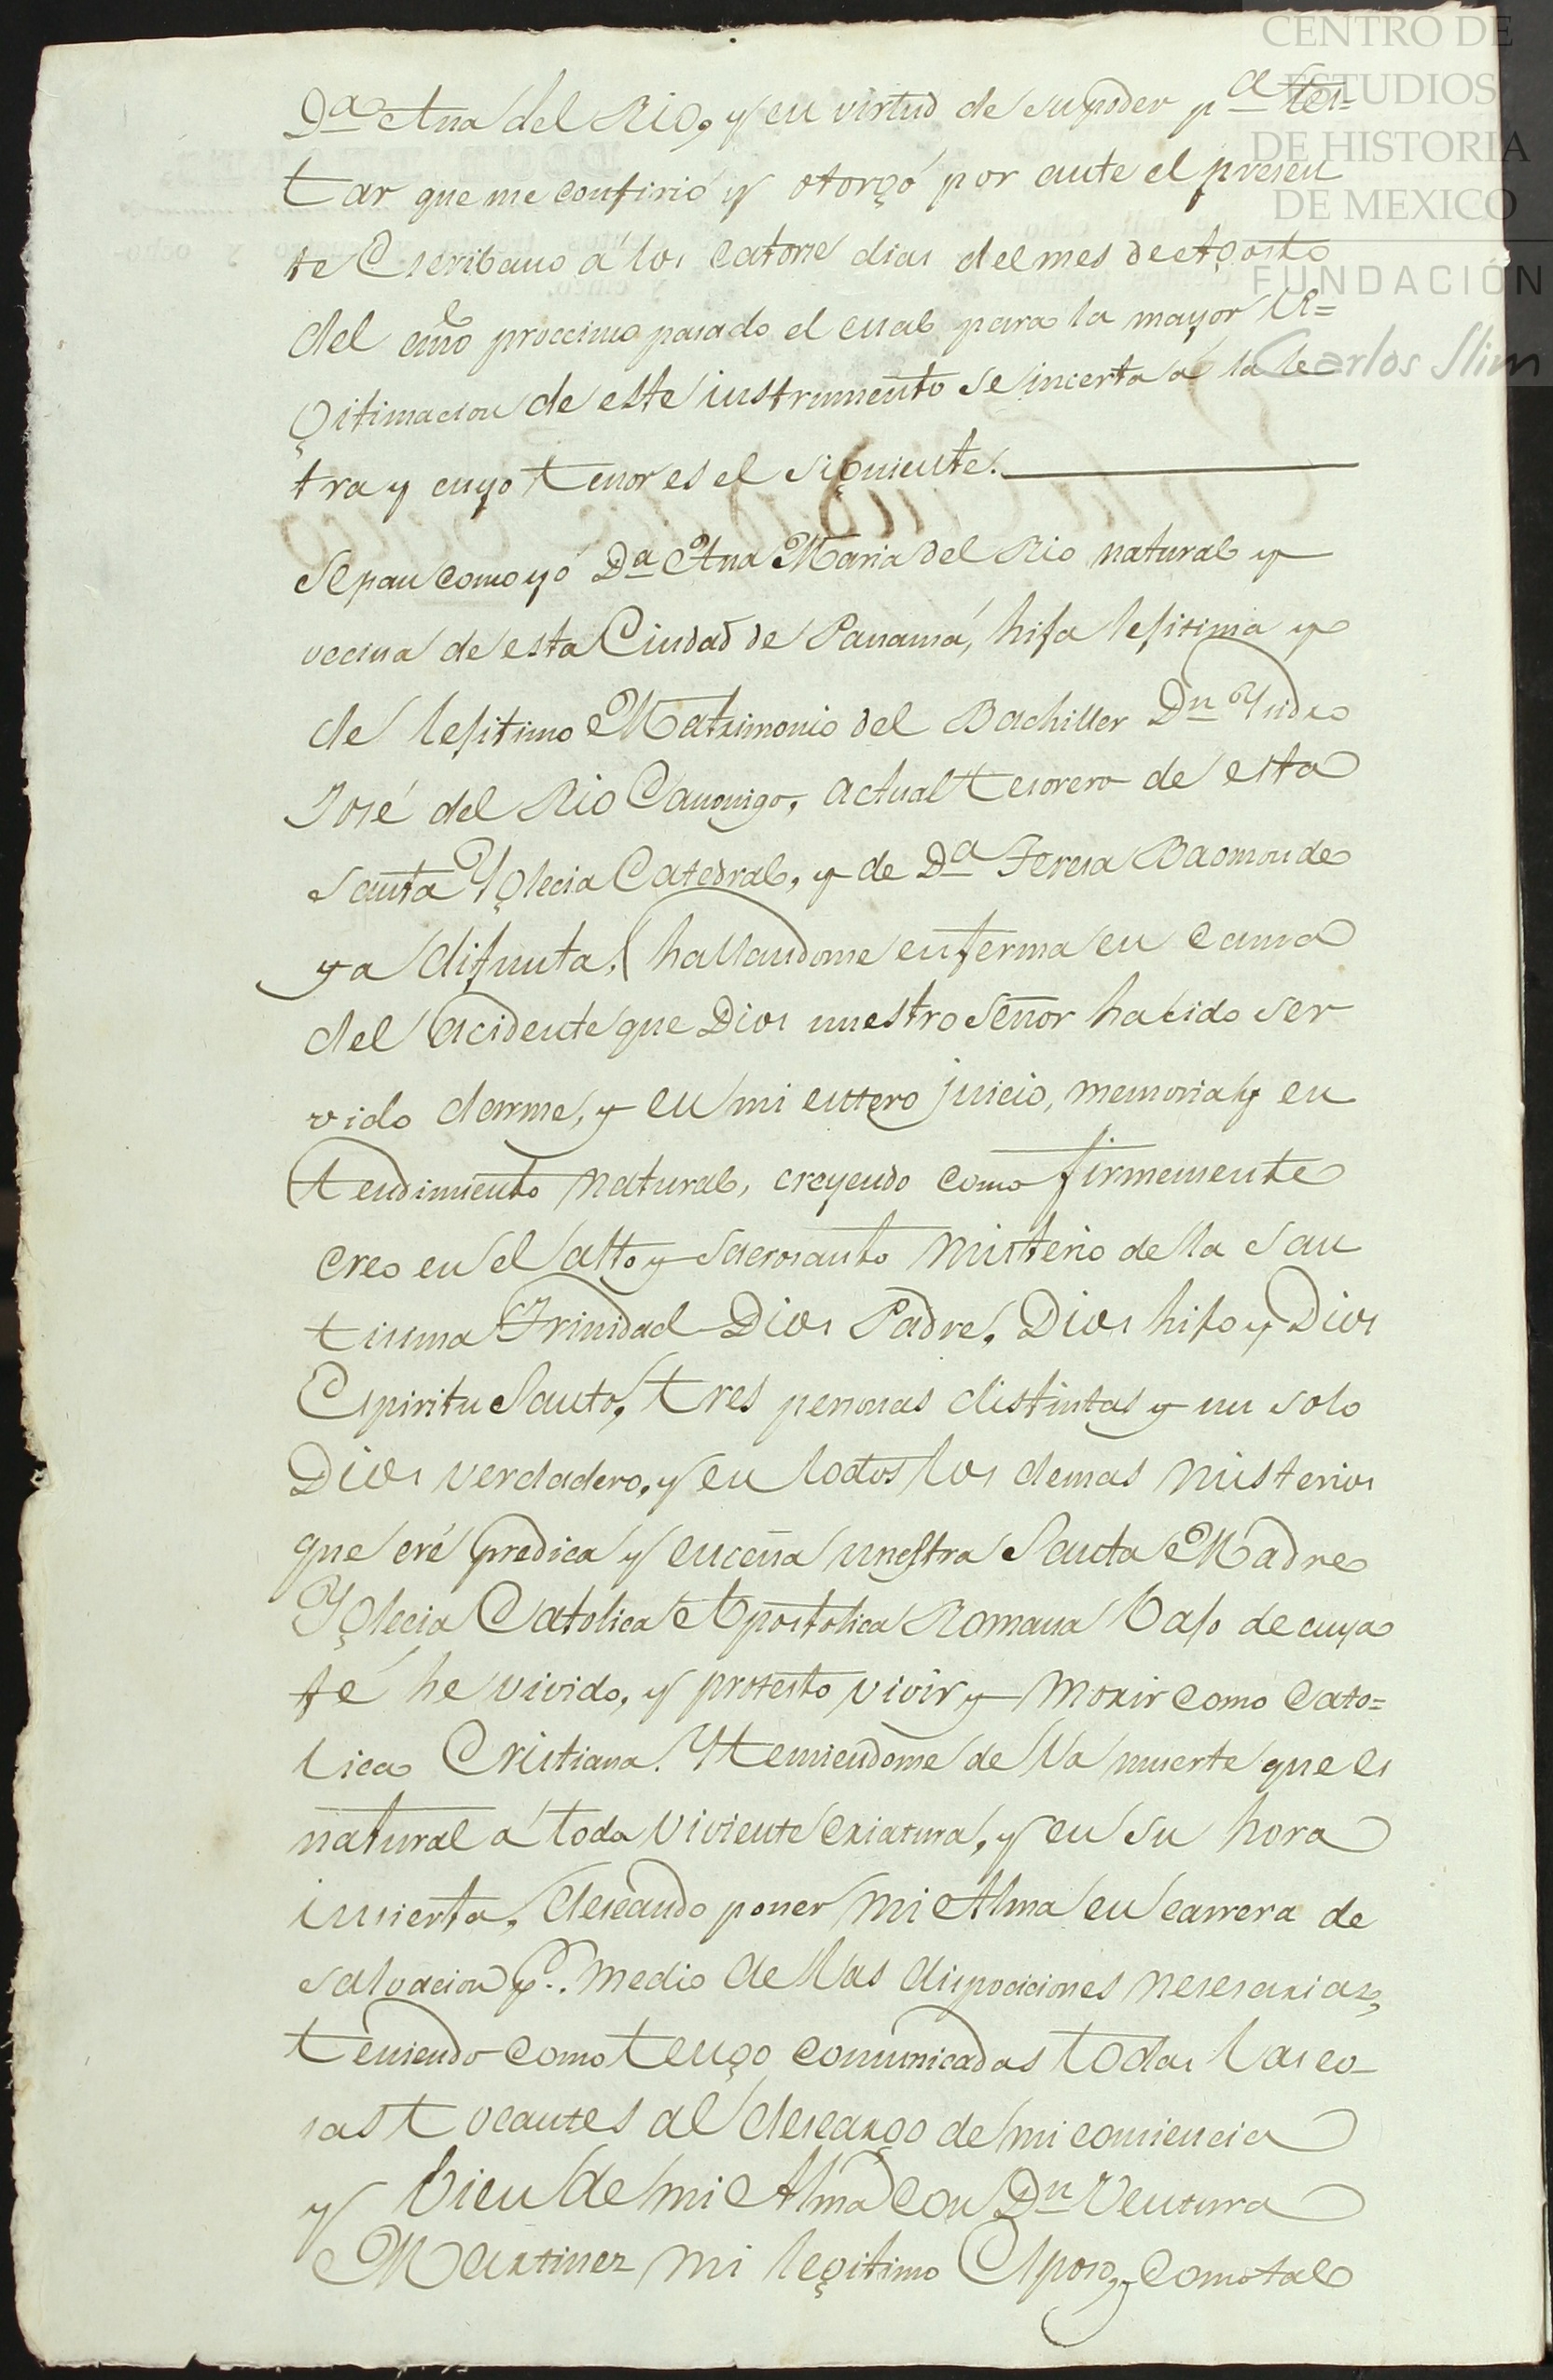 CENTRO DE
ESTUDIOS
DE HISTORIA
DE MEXICO
FUNDACIÓN
Carlos Slim
Da. Ana del Rio, y en virtud de su poder pa. tes=
tar que me confirió y otorgó por ante el presen
te Escribano á los catorse dias del mes de Agosto
del año proccimo pasado el cual para la mayor le=
gitimacion de este instrumento se incerta á la le
tra y cuyo tenor es el siguiente.
Sepan como yó Da. Ana Maria del Rio natural y
vecina de esta Ciudad de Panamá, hija lejitima y
de lejitimo Matrimonio del Bachiller Dn.
José del Rio Canonigo, actual tesorero de esta
Santa Yglecia Catedral, y de Da. Teresa Baomonde
ya difunta, hallandome enferma en cama
del acidente que Dios nuestro Señor ha cido ser
vido darme, y en mi entero juicio, memoria y en
tendimiento natural, creyendo como firmemente
creo en el alto y sacrosanto misterio de la San
tisima Trinidad Dios Padre, Dios hijo y Dios
Espiritu Santo, tres personas distintas y un solo
Dios verdadero, y en todos los demas misterios
que cré predica y enceña nuestra Santa Madre
Yglecia Catolica Apostolica Romana bajo de cuya
fé he vivido, y protesto vivir y morir como Cato=
lica Cristiana. Y temiendome de la muerte que es
natural á toda viviente criatura, y en su hora
incierta, deseando poner mi Alma en carrera de
salvacion pr. medio de las dispociciones nesesarias,
teniendo como tengo comunicadas todas las co-
sas tocantes al descargo de mi consiencia
y bien de mi Alma con Dn. Ventura
Martinez mi legitimo Esposo, y como tal